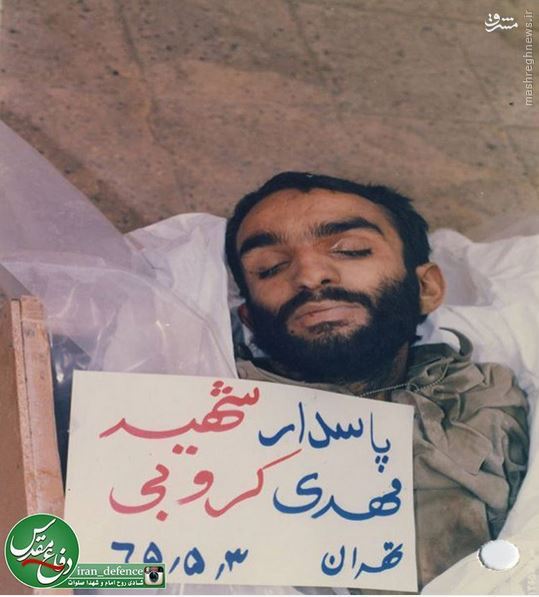 مشرق
mashreghnews.ir
پاسدار شهید
مهدی کروبی
تهران ۶۵/۵/۳
دفاع مقدس
iran_defence
شادی روح امام و شهدا صلوات